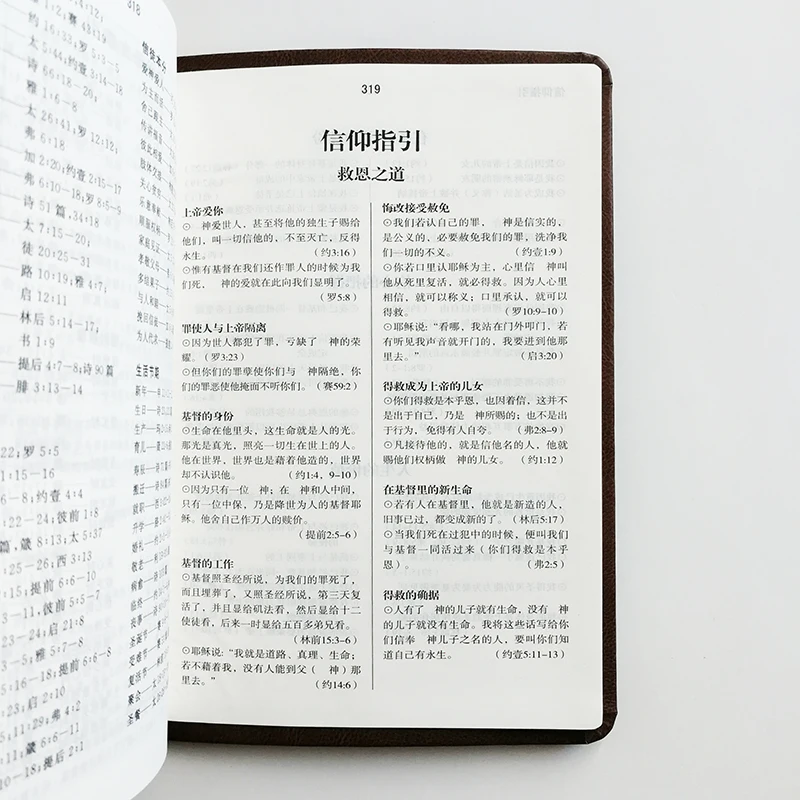 318
1:2；赛43:19
约16:33；罗5:3-5
太5:44；约壹3:14-18
诗66:18-20；
雅1:6-8
太26:41；罗12:12；
弗6:18
加2:20；约壹2:15-17
弗6:10-18；罗8:5-9
诗51篇，34:18
太7:15-20；
徒20:25-31
路10:19；雅4:7；
启12:11
林后5:14-17；
书1:9
提后4:7-8；诗90篇
腓3:13-14
:22；罗5:5
1:15-16
6:5；约壹4:4
:22-24；彼前1:8
篇，箴8:13；太5:37
3:25-26；西3:13
；提前6:6-8
3-11；彼前5:5-7
信徒本分
生活节期
319
信仰指引
救恩之道
上帝爱你
⊙　神爱世人，甚至将他的独生子赐给
他们，叫一切信他的，不至灭亡，反得
永生。（约3:16）
⊙惟有基督在我们还作罪人的时候为我
们死，　神的爱就在此向我们显明了。
（罗5:8）
罪使人与上帝隔离
⊙因为世人都犯了罪，亏缺了　神的荣
耀。（罗3:23）
⊙但你们的罪孽使你们与　神隔绝，你
们的罪恶使他掩面不听你们。（赛59:2）
基督的身份
⊙生命在他里头，这生命就是人的光。
那光是真光，照亮一切生在世上的人。
他在世界，世界也是藉着他造的，世界
却不认识他。（约1:4，9-10）
⊙因为只有一位　神；在　神和人中间，
只有一位中保，乃是降世为人的基督耶
稣。他舍自己作万人的赎价。
（提前2:5-6）
基督的工作
⊙基督照圣经所说，为我们的罪死了，
而且埋葬了，又照圣经所说，第三天复
活了，并且显给矶法看，然后显给十二
使徒看，后来一时显给五百多弟兄看。
（林前15:3-6）
⊙耶稣说:“我就是道路、真理、生命；
若不藉着我，没有人能到父（　神）那
里去。”（约14:6）
悔改接受赦免
⊙我们若认自己的罪，　神是信实的，
是公义的、必要赦免我们的罪，洗净我
们一切的不义。（约壹1:9）
⊙你若口里认耶稣为主，心里信　神叫
他从死里复活，就必得救。因为人心里
相信，就可以称义；口里承认，就可以
得救。（罗10:9-10）
⊙耶稣说:“看哪，我站在门外叩门，若
有听见我声音就开门的，我要进到他那
里去。”（启3:20）
得救成为上帝的儿女
⊙你们得救是本乎恩，也因着信，这并不
是出于自己，乃是　神所赐的；也不是出
于行为，免得有人自夸。（弗2:8-9）
⊙凡接待他的，就是信他名的人，他就
赐他们权柄做　神的儿女。（约1:12）
在基督里的新生命
⊙若有人在基督里，他就是新造的人，
旧事已过，都变成新的了。（林后5:17）
⊙当我们死在过犯中的时候，便叫我们
与基督一同活过来（你们得救是本乎
恩）。（弗2:5）
得救的确据
⊙人有了　神的儿子就有生命，没有　神
的儿子就没有生命。我将这些话写给你
们信奉　神儿子之名的人，要叫你们知
道自己有永生。（约壹5:11-13）